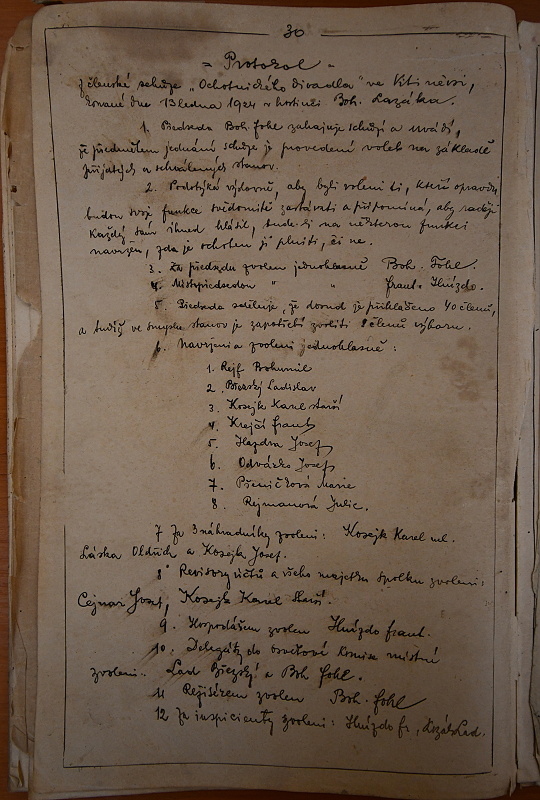 30
= Protokol =
z členské schůze „Ochotnického divadla" ve Ktiněvsi,
konané dne 13 ledna 1924 v hostinci Boh. Lazáka.
1. Předseda Boh. Fohl zahajuje schůzi a uvádí,
že předmětem jednání schůze je provedení voleb na základě
přijatých a schválených stanov.
2. Podotýká výslovně, aby byli voleni ti, kteří opravdu
budou svoje funkce svědomitě zastávati a připomíná, aby raději
každý sám ihned hlásil, bude-li na některou funkci
navržen, zda je ochoten ji plniti, či ne.
3. Za předsedu zvolen jednohlasně Boh. Fohl.
4. Místopředsedou " " Frant. Hnízdo.
5. Předseda sděluje, že dosud je přihlášeno 40 členů,
a tudíž ve smyslu stanov je zapotřebí zvoliti 8 členů výboru.
6. Navrženi a zvoleni jednohlasně:
1. Rejf Bohumil
2. Březský Ladislav
3. Kosejk Karel starší
4. Krejčí Frant.
5. Hajdra Josef
6. Odvázko Josef
7. Pšeničková Marie
8. Rejmanová Julie.
7 Za 3 náhradníky zvoleni: Kosejk Karel ml.
Láska Oldřich a Kosejk Josef.
8 Revisory účtů a všeho majetku spolku zvoleni:
Cejnar Josef, Kosejk Karel starší.
9. Hospodářem zvolen Hnízdo Frant.
10. Delegáty do osvětové komise místní
zvoleni: Lad Březský a Boh Fohl.
11 Režisérem zvolen Boh. Fohl
12 Za inspicienty zvoleni: Hnízdo Fr., Lad.